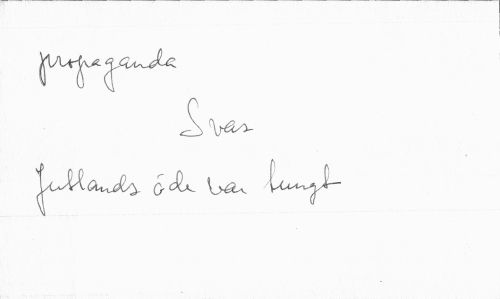 propaganda
Svar
Jutlands öde var tungt